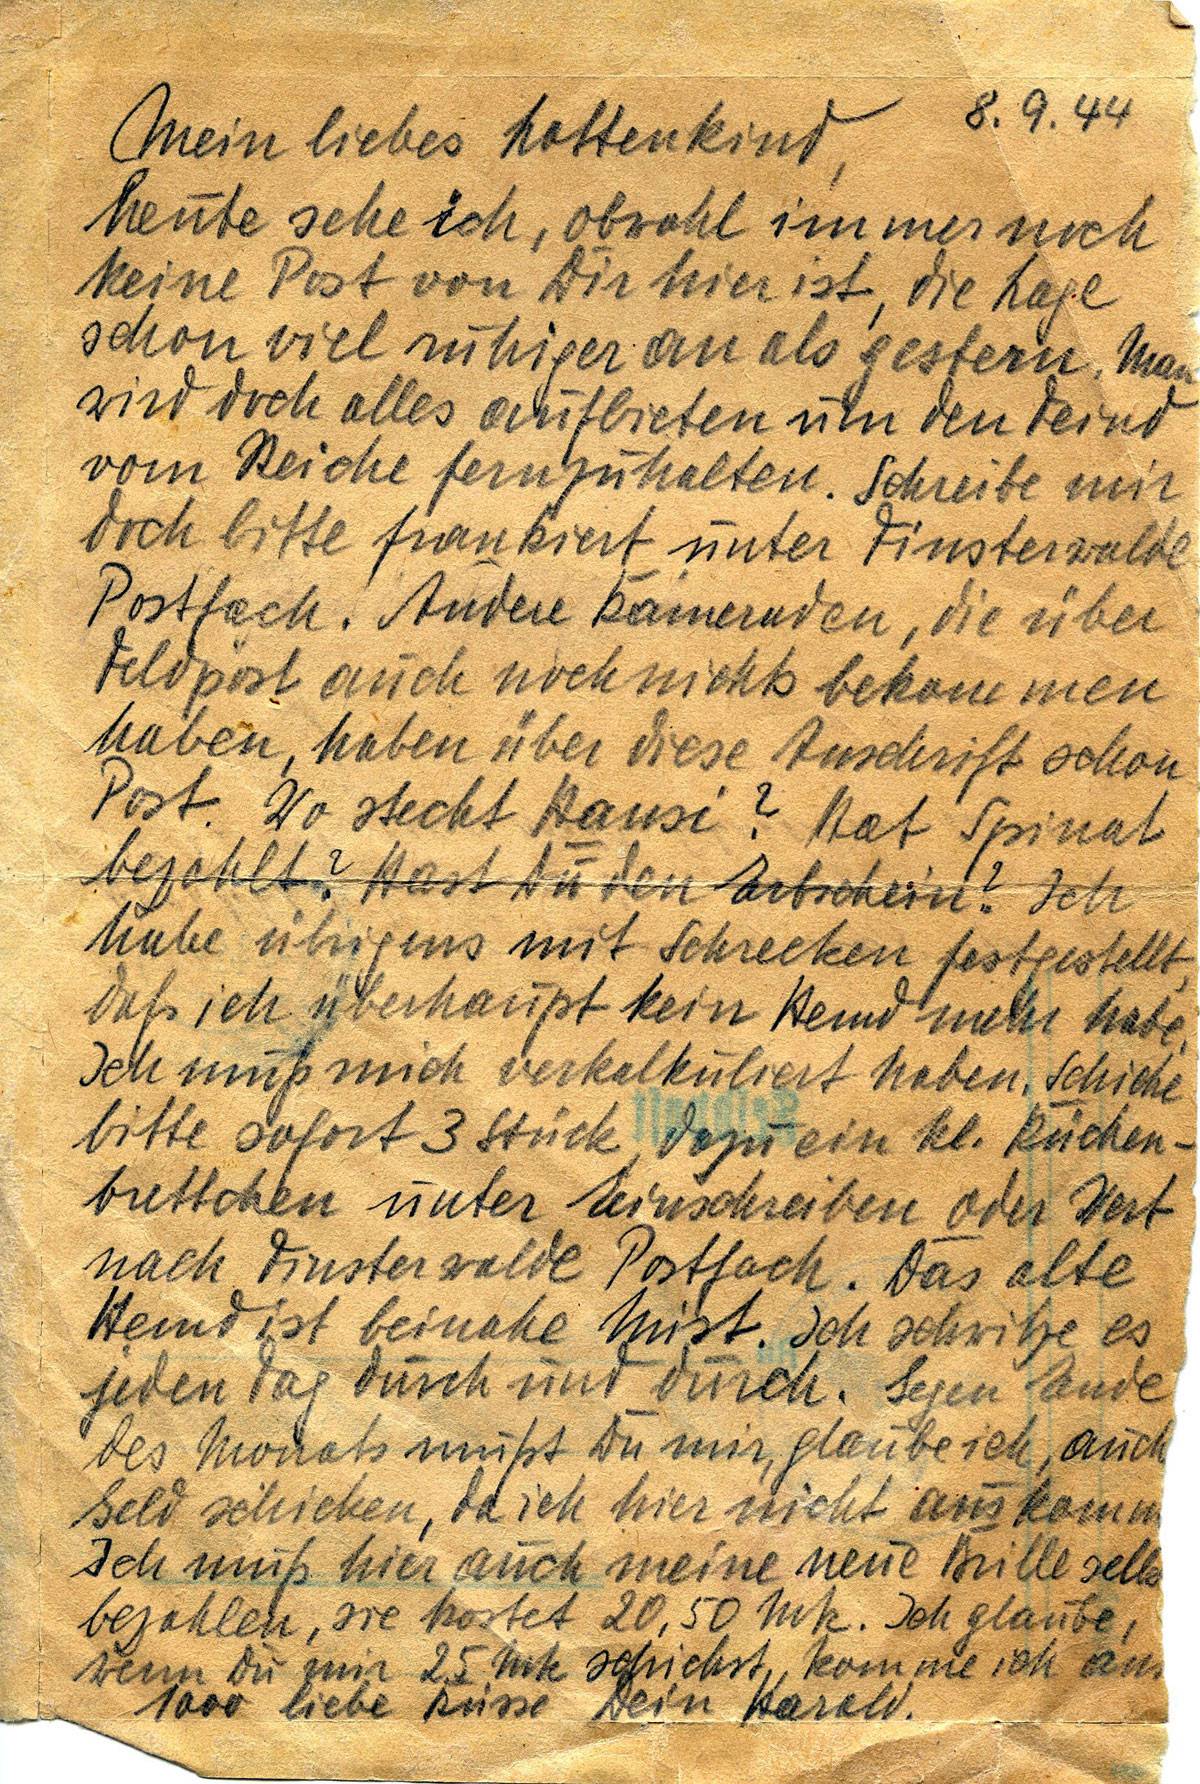 8. 9. 44
Mein liebes Lottenkind,
heute sehe ich, obwohl immer noch
keine Post von Dir hier ist, die Lage
schon viel ruhiger an als gestern. Man
wird doch alles aufbieten um den Feind
vom Reiche fernzuhalten. Schreibe mir
doch bitte frankiert unter Finsterwalde
Postfach. Andere Kameraden, die über
Feldpost auch noch nichts bekommen
haben, haben über diese Anschrift schon
Post. Wo steckt Hansi? Hat Spinat
bezahlt? Hast Du den Erbschein? Ich
habe übrigens mit Schrecken festgestellt,
daß ich überhaupt kein Hemd mehr habe.
Ich muß mich verkalkuliert haben. Schicke
bitte sofort 3 Stück, dazu ein kl. Küchen-
brettchen unter Einschreiben oder Wert
nach Finsterwalde Postfach. Das alte
Hemd ist beinahe Mist. Ich schwitze es
jeden Tag durch und durch. Gegen Ende
des Monats mußt Du mir, glaube ich, auch
Geld schicken, da ich hier nicht auskomm
Ich muß hier auch meine neue Brille selb
bezahlen, sie kostet 20,50 Mk. Ich glaube,
wenn Du mir 25 Mk schickst, komme ich aus
1000 liebe Küsse Dein Harald.